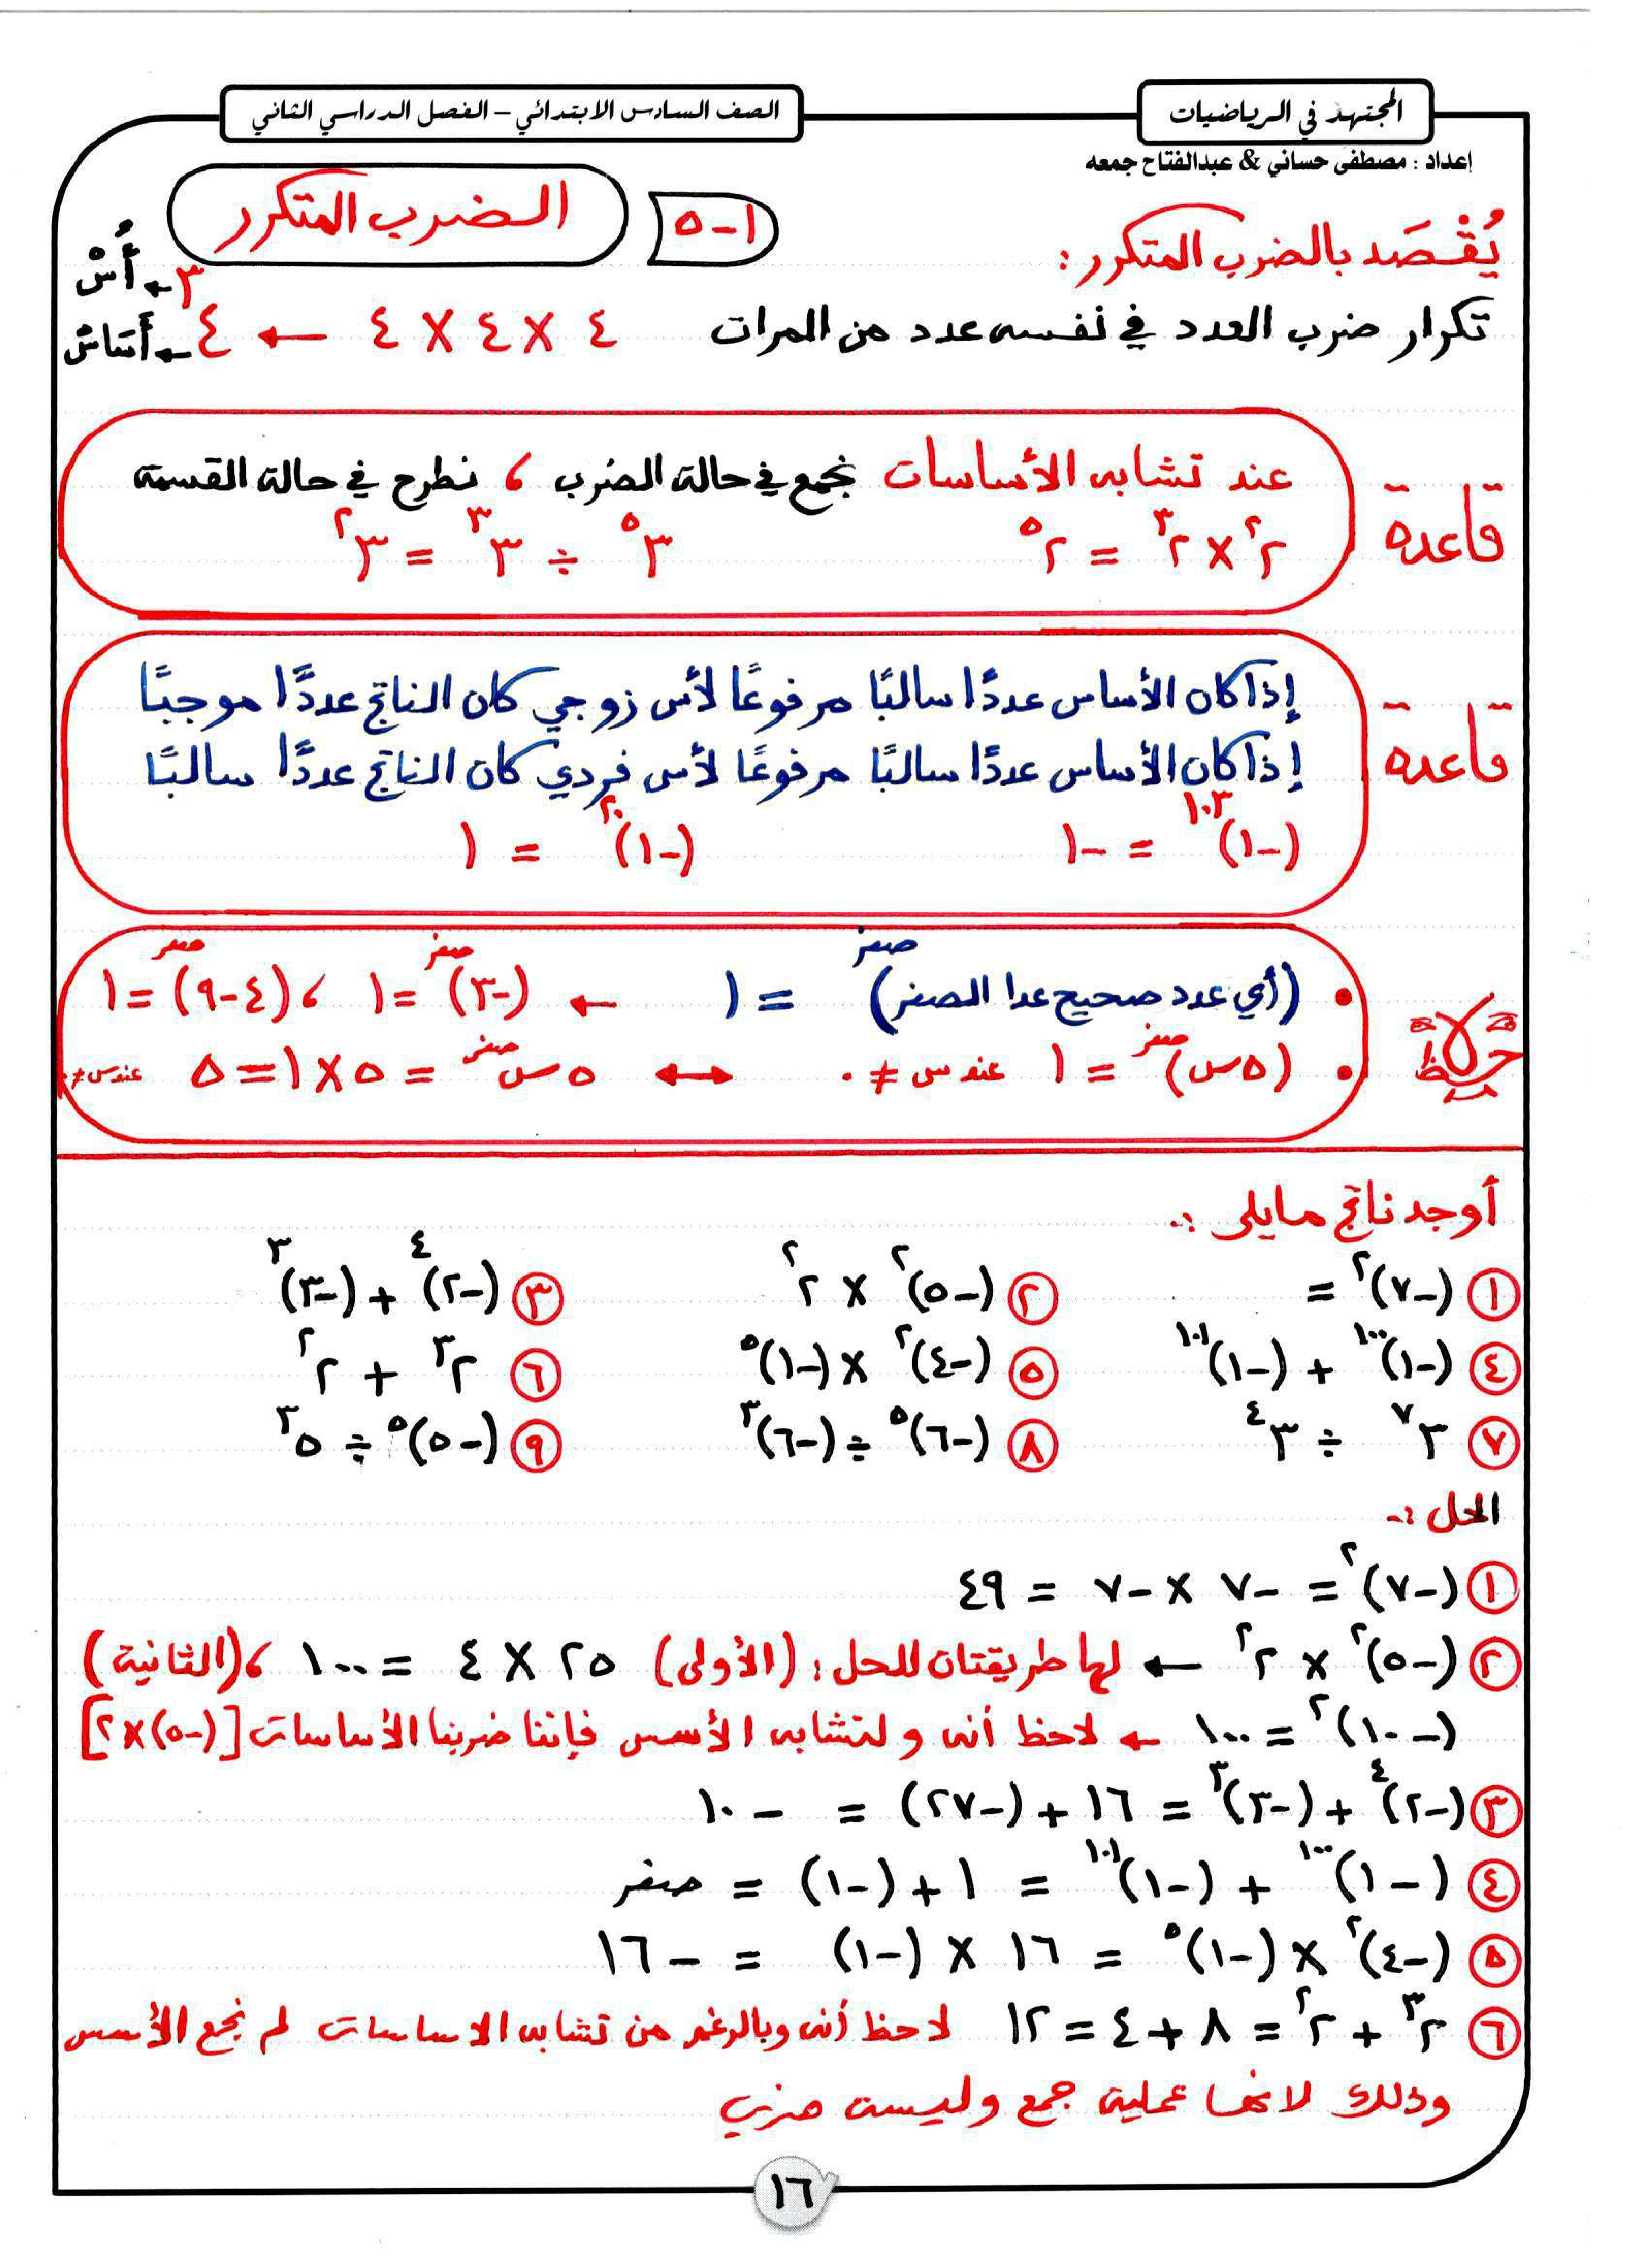 المجتهد في الرياضيات
الصف السادس الابتدائي – الفصل الدراسي الثاني
إعداد : مصطفى حساني & عبدالفتاح جمعه
١-٥ الضرب المتكرر
يُقْصَد بالضرب المتكرر :
تكرار ضرب العدد في نفسه عدد من المرات ٤ × ٤ × ٤ ← ٤³ ← أُسْ
← أَسَاسْ
قاعدة
عند تشابه الأساسات نجمع في حالة الضرب ، نطرح في حالة القسمة
٢² × ٢³ = ٢⁵ ٣⁵ ÷ ٣³ = ٣²
قاعدة
إذا كان الأساس عددًا سالبًا مرفوعًا لأس زوجي كان الناتج عددًا موجبًا
إذا كان الأساس عددًا سالبًا مرفوعًا لأس فردي كان الناتج عددًا سالبًا
(-١)¹⁰³ = -١ (-١)²⁰ = ١
لاحظ
• (أي عدد صحيح عدا الصفر)صفر = ١ ← (-٣)صفر = ١ ، (٤-٩)صفر = ١
• (٥س)صفر = ١ عند س ≠ ٠ ↔ ٥ سصفر = ٥ × ١ = ٥ عند س ≠ ٠
أوجد ناتج مايلى :-
① (-٧)² = ② (-٥)² × ٢² ③ (-٢)⁴ + (-٣)³
④ (-١)¹⁰⁰ + (-١)¹⁰¹ ⑤ (-٤)² × (-١)⁵ ⑥ ٢³ + ٢²
⑦ ٣⁷ ÷ ٣⁴ ⑧ (-٦)⁵ ÷ (-٦)³ ⑨ (-٥)⁵ ÷ ٥³
الحل :-
① (-٧)² = -٧ × -٧ = ٤٩
② (-٥)² × ٢² ← لها طريقتان للحل : (الأولى) ٢٥ × ٤ = ١٠٠ ، (الثانية)
(-١٠)² = ١٠٠ ← لاحظ أنه ولتشابه الأسس فإننا ضربنا الأساسات [(-٥) × ٢]
③ (-٢)⁴ + (-٣)³ = ١٦ + (-٢٧) = -١٠
④ (-١)¹⁰⁰ + (-١)¹⁰¹ = ١ + (-١) = صفر
⑤ (-٤)² × (-١)⁵ = ١٦ × (-١) = -١٦
⑥ ٢³ + ٢² = ٨ + ٤ = ١٢ لاحظ أنه وبالرغم من تشابه الاساسات لم نجمع الأسس
وذلك لانها عملية جمع وليست ضرب
١٦